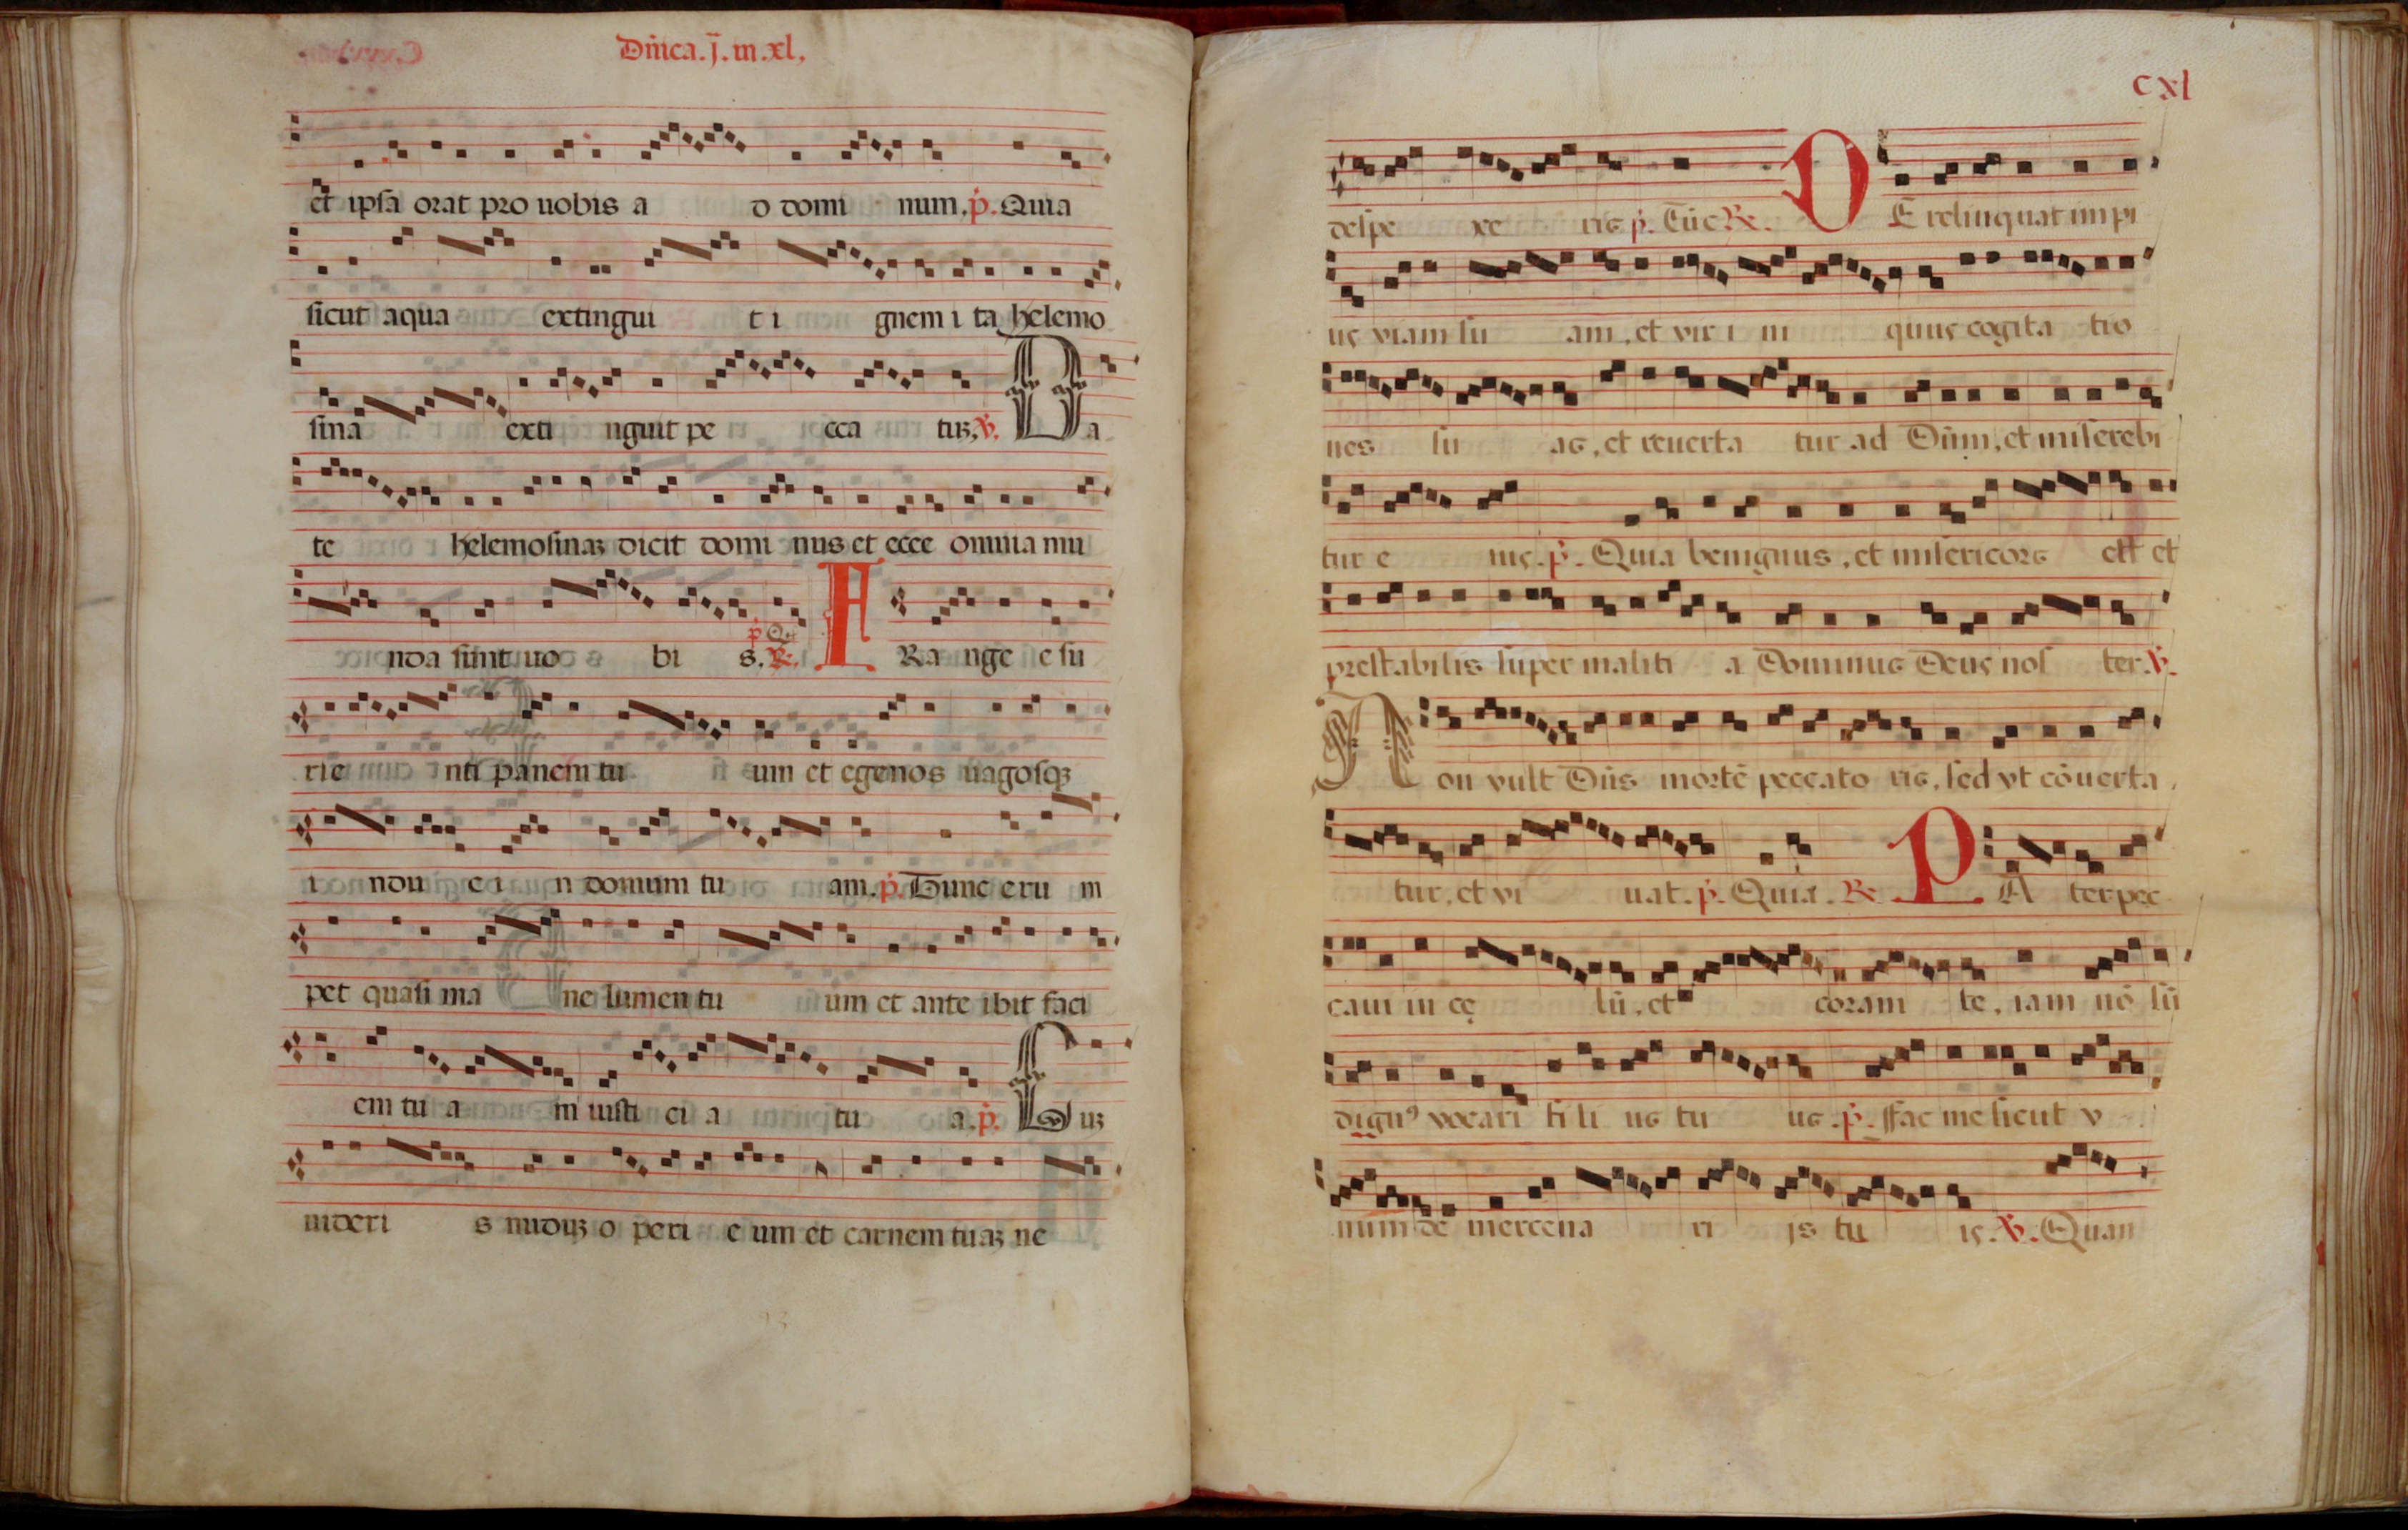 Dn̄ica.j̄.in.xl.
et ipsa orat pro uobis a d domi num.p̄. Quia
sicut aqua extingui t i gnem i ta helemo
sina exti nguit pe cca tuꝫ.v̄. Da
te helemosinaꝫ dicit domi nus et ecce omnia mu
nda sunt uo bi s. p̄ Q. R̄. F Ra nge e su
rie nti panem tu um et egenos uagosqꝫ
i ndu c i n domum tu am.p̄. Tunc eru m
pet quasi ma ne lumen tu um et ante ibit faci
em tu a m iusti ci a tu a.p̄. Cuꝫ
uideri s nuduꝫ o peri e um et carnem tuaꝫ ne
cxl
despe xe ris p̄. Tūc R̄. D E relinquat impi
us viam su am, et vir i ni quus cogita tio
nes su as, et reuerta tur ad Dūm, et miserebi
tur e ius.p̄. Quia benignus, et misericors est et
prestabilis super maliti a Dominus Deus nos ter.v̄.
Non vult Dn̄s mortē peccato ris, sed vt cōuerta
tur, et vi uat.p̄. Quia. R̄. P A ter pec
caui in cę lū, et coram te, iam nō sū
dignꝰ vocari fi li us tu us.p̄. ffac me sicut v
num de mercena ri js tu is.v̄. Quan